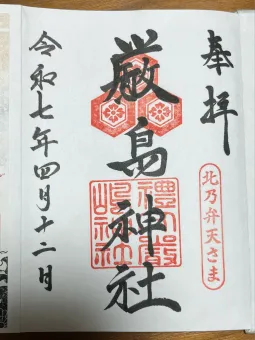 奉拝
北乃弁天さま
厳島神社
令和七年四月十二日